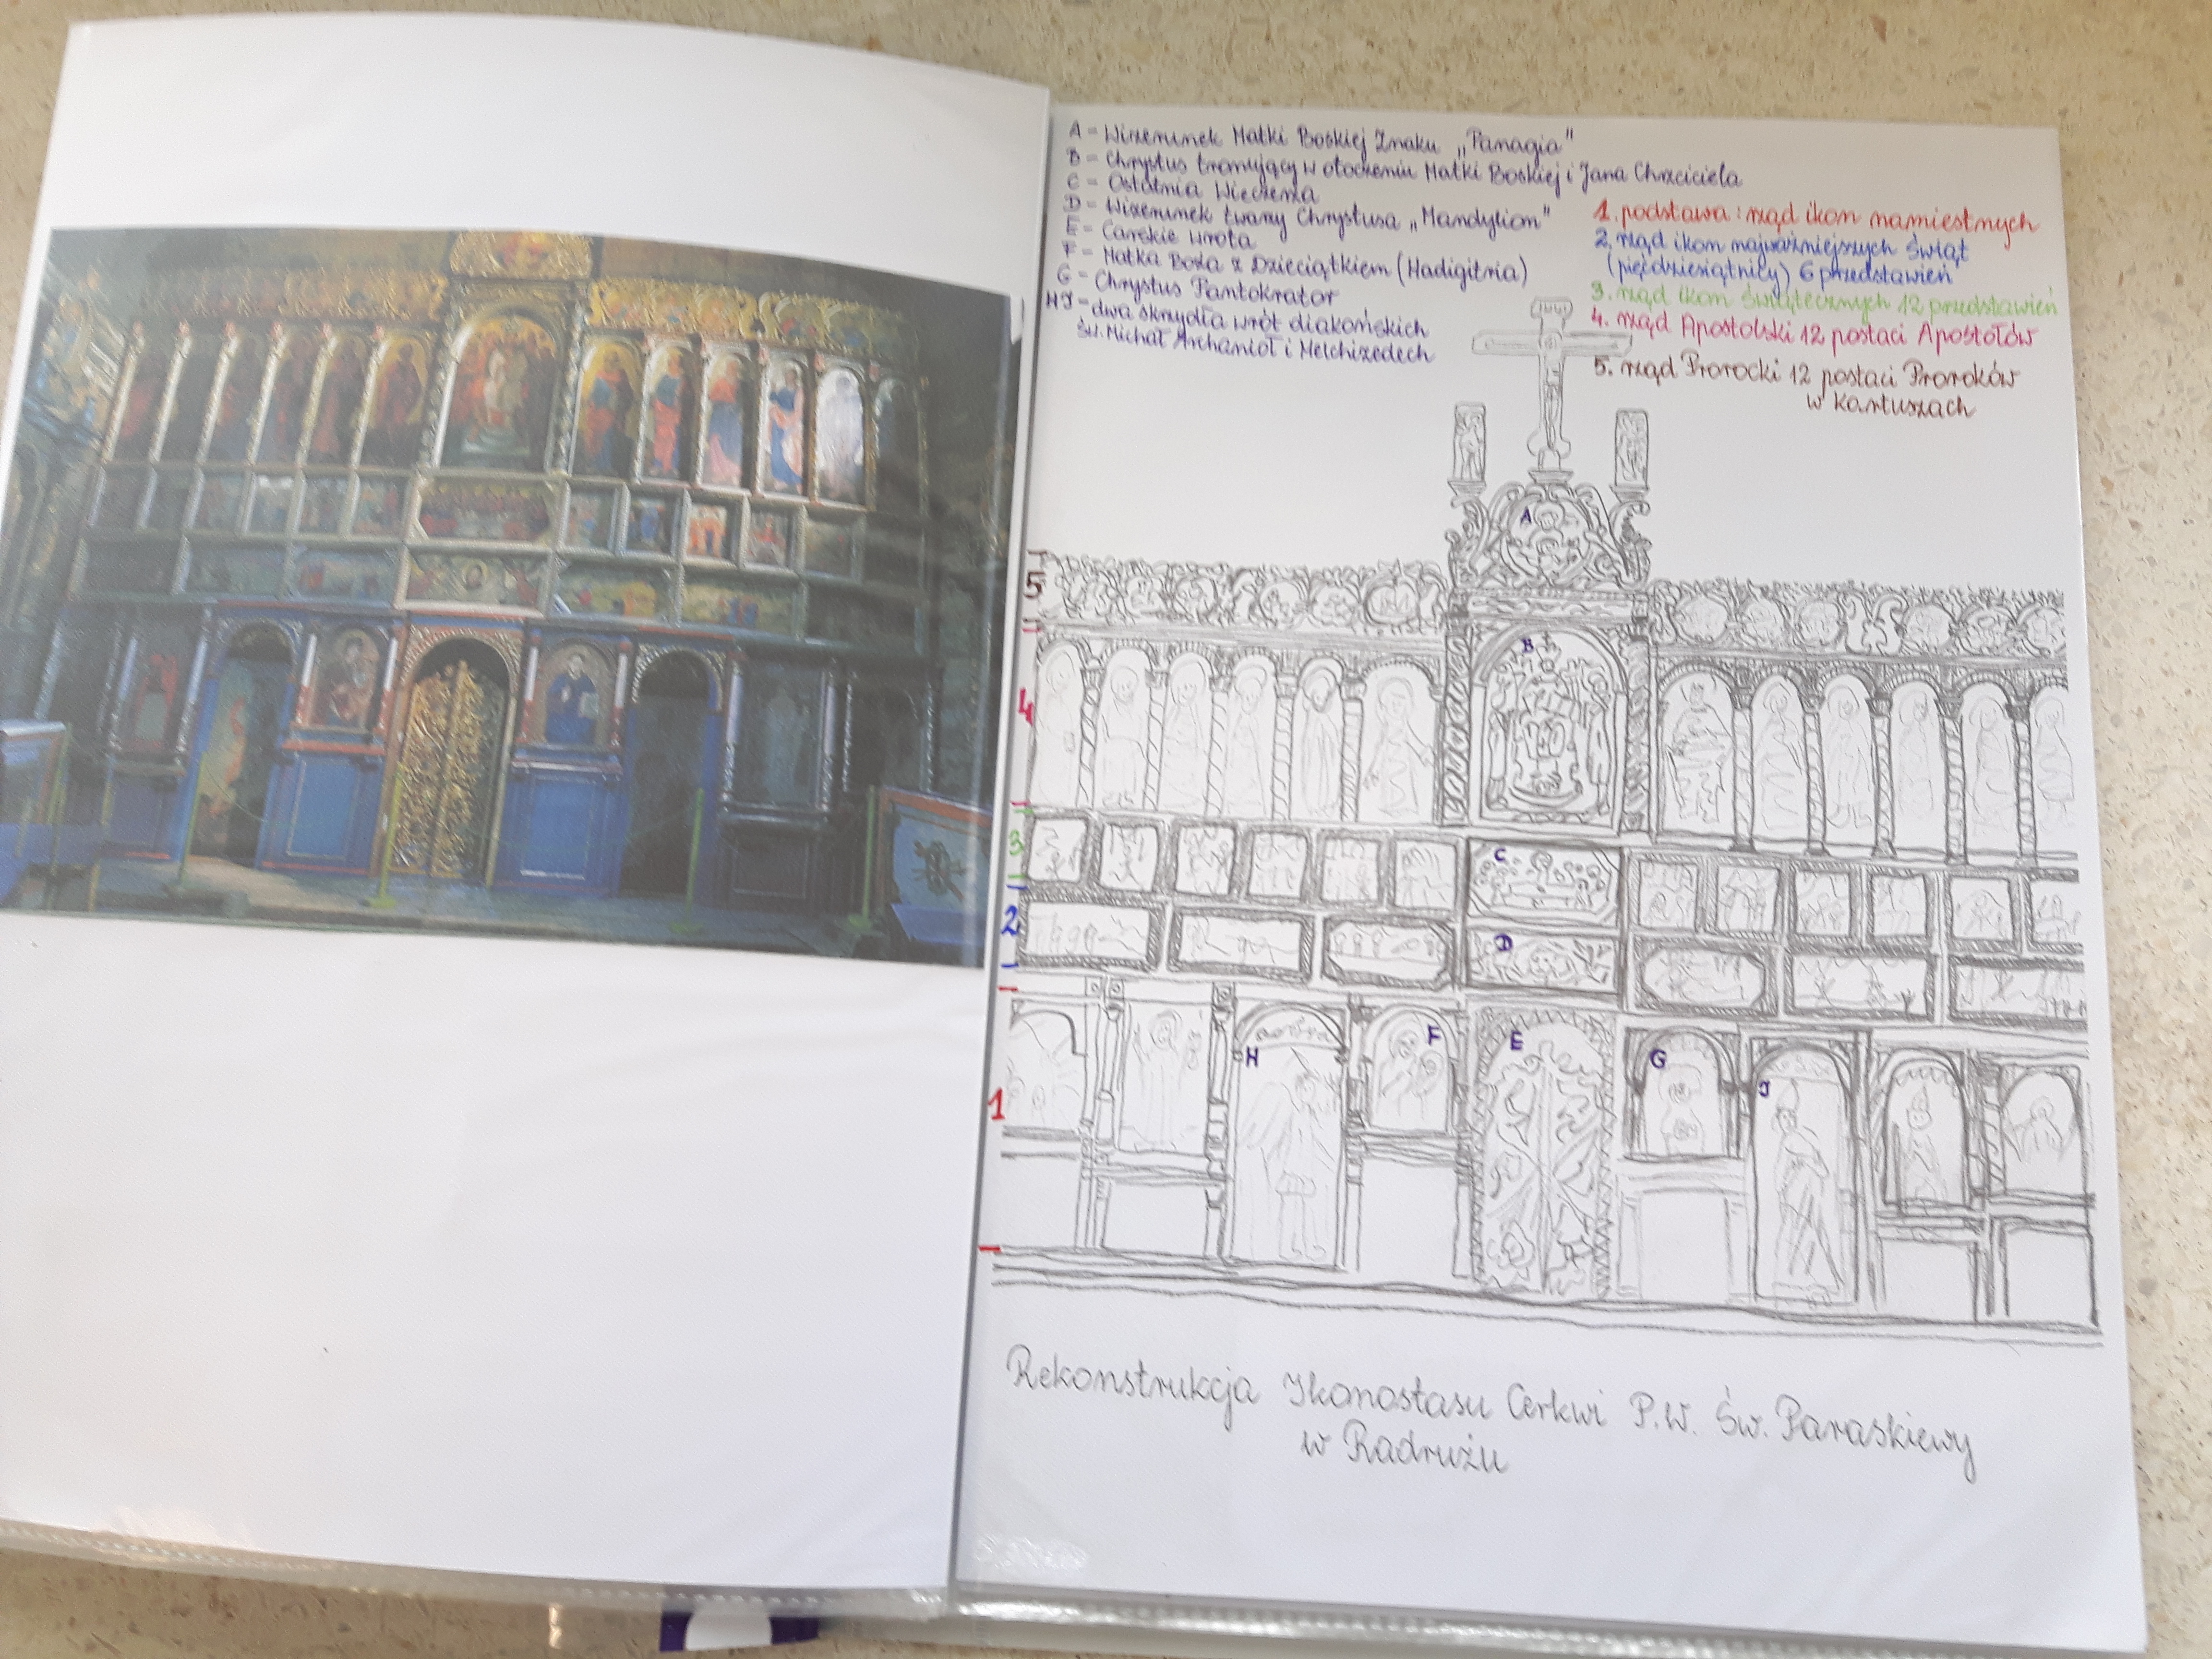 A - Wizerunek Matki Boskiej Znaku „Panagia"
B - Chrystus tronujący w otoczeniu Matki Boskiej i Jana Chrzciciela
C - Ostatnia Wieczerza
D - Wizerunek twarzy Chrystusa „Mandylion"
E - Carskie wrota
F - Matka Boża z Dzieciątkiem (Hadigitria)
G - Chrystus Pantokrator
HJ - dwa skrzydła wrót diakońskich
Św. Michał Archanioł i Melchizedech
1. podstawa: rząd ikon namiestnych
2. rząd ikon najważniejszych Świąt
(pięćdziesiątnicy) 6 przedstawień
3. rząd ikon Świątecznych 12 przedstawień
4. rząd Apostolski 12 postaci Apostołów
5. rząd Prorocki 12 postaci Proroków
w Kartuszach
A
5
B
4
3
C
2
D
H
F
E
G
J
1
Rekonstrukcja Ikonostasu Cerkwi P.W. Św. Paraskiewy
w Radrużu